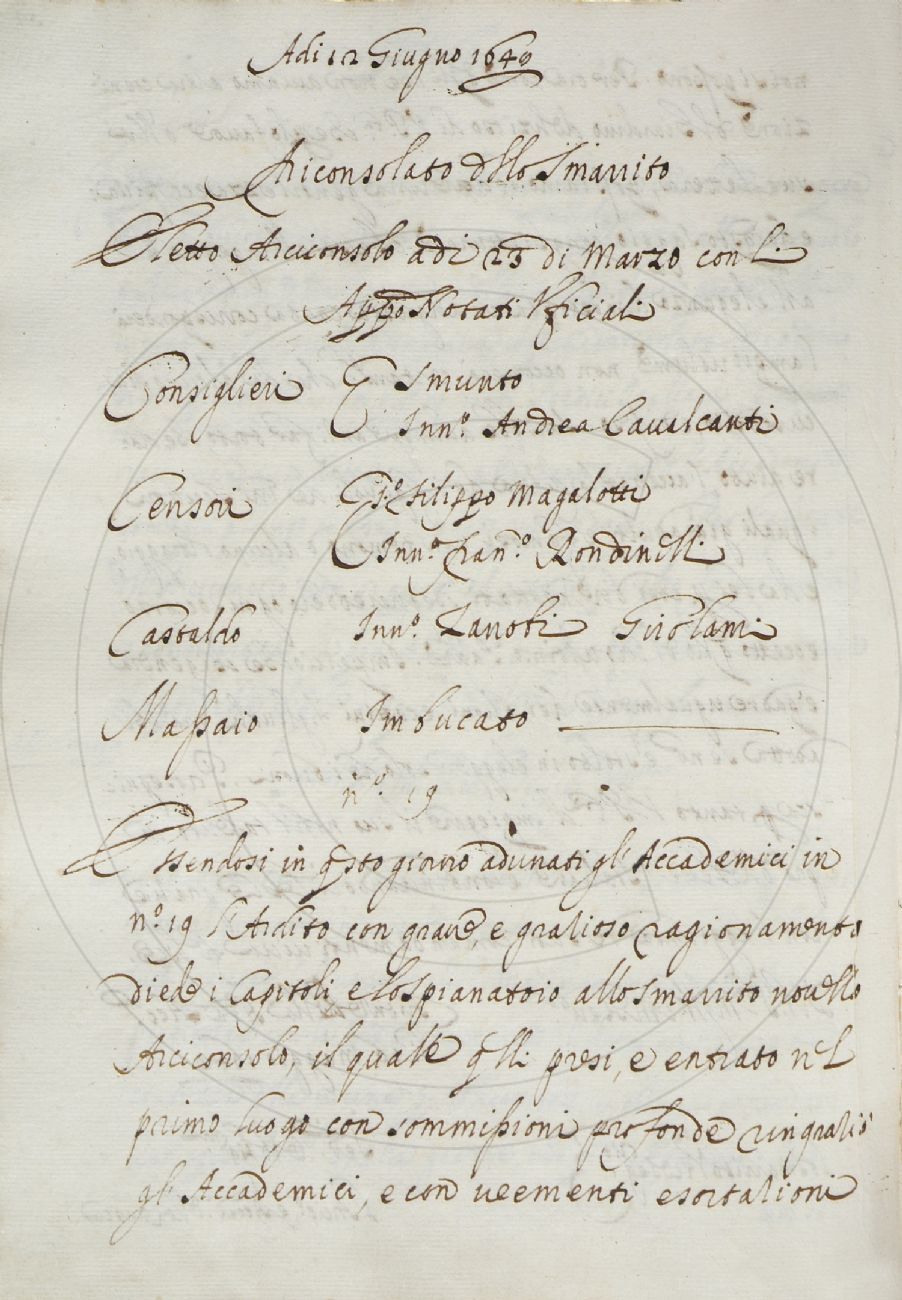 Adi 12 Giugno 1649
Arciconsolato dllo Smarrito
Eletto Arciconsolo adi 23 di Marzo con l:
App.o Notati Vfficiali
Consiglieri Smunto
Inn.o Andrea Caualcanti
Censori Filippo Magalotti
Inn.o Fran.o Rondinelli
Castaldo Inn.o Zanobi Girolami
Massaio Imbucato
n.o 19
Essendosi in qsto giorno adunati gl' Accademici in
n.o 19 l'Ardito con graue, e gratioso ragionamento
diede i Capitoli e lo spianatoio allo Smarrito nouello
Arciconsolo, il quale qlli presi, e entrato nel
primo luogo con sommissioni profonde ringratiò
gl' Accademici, e con ueementi esortationi